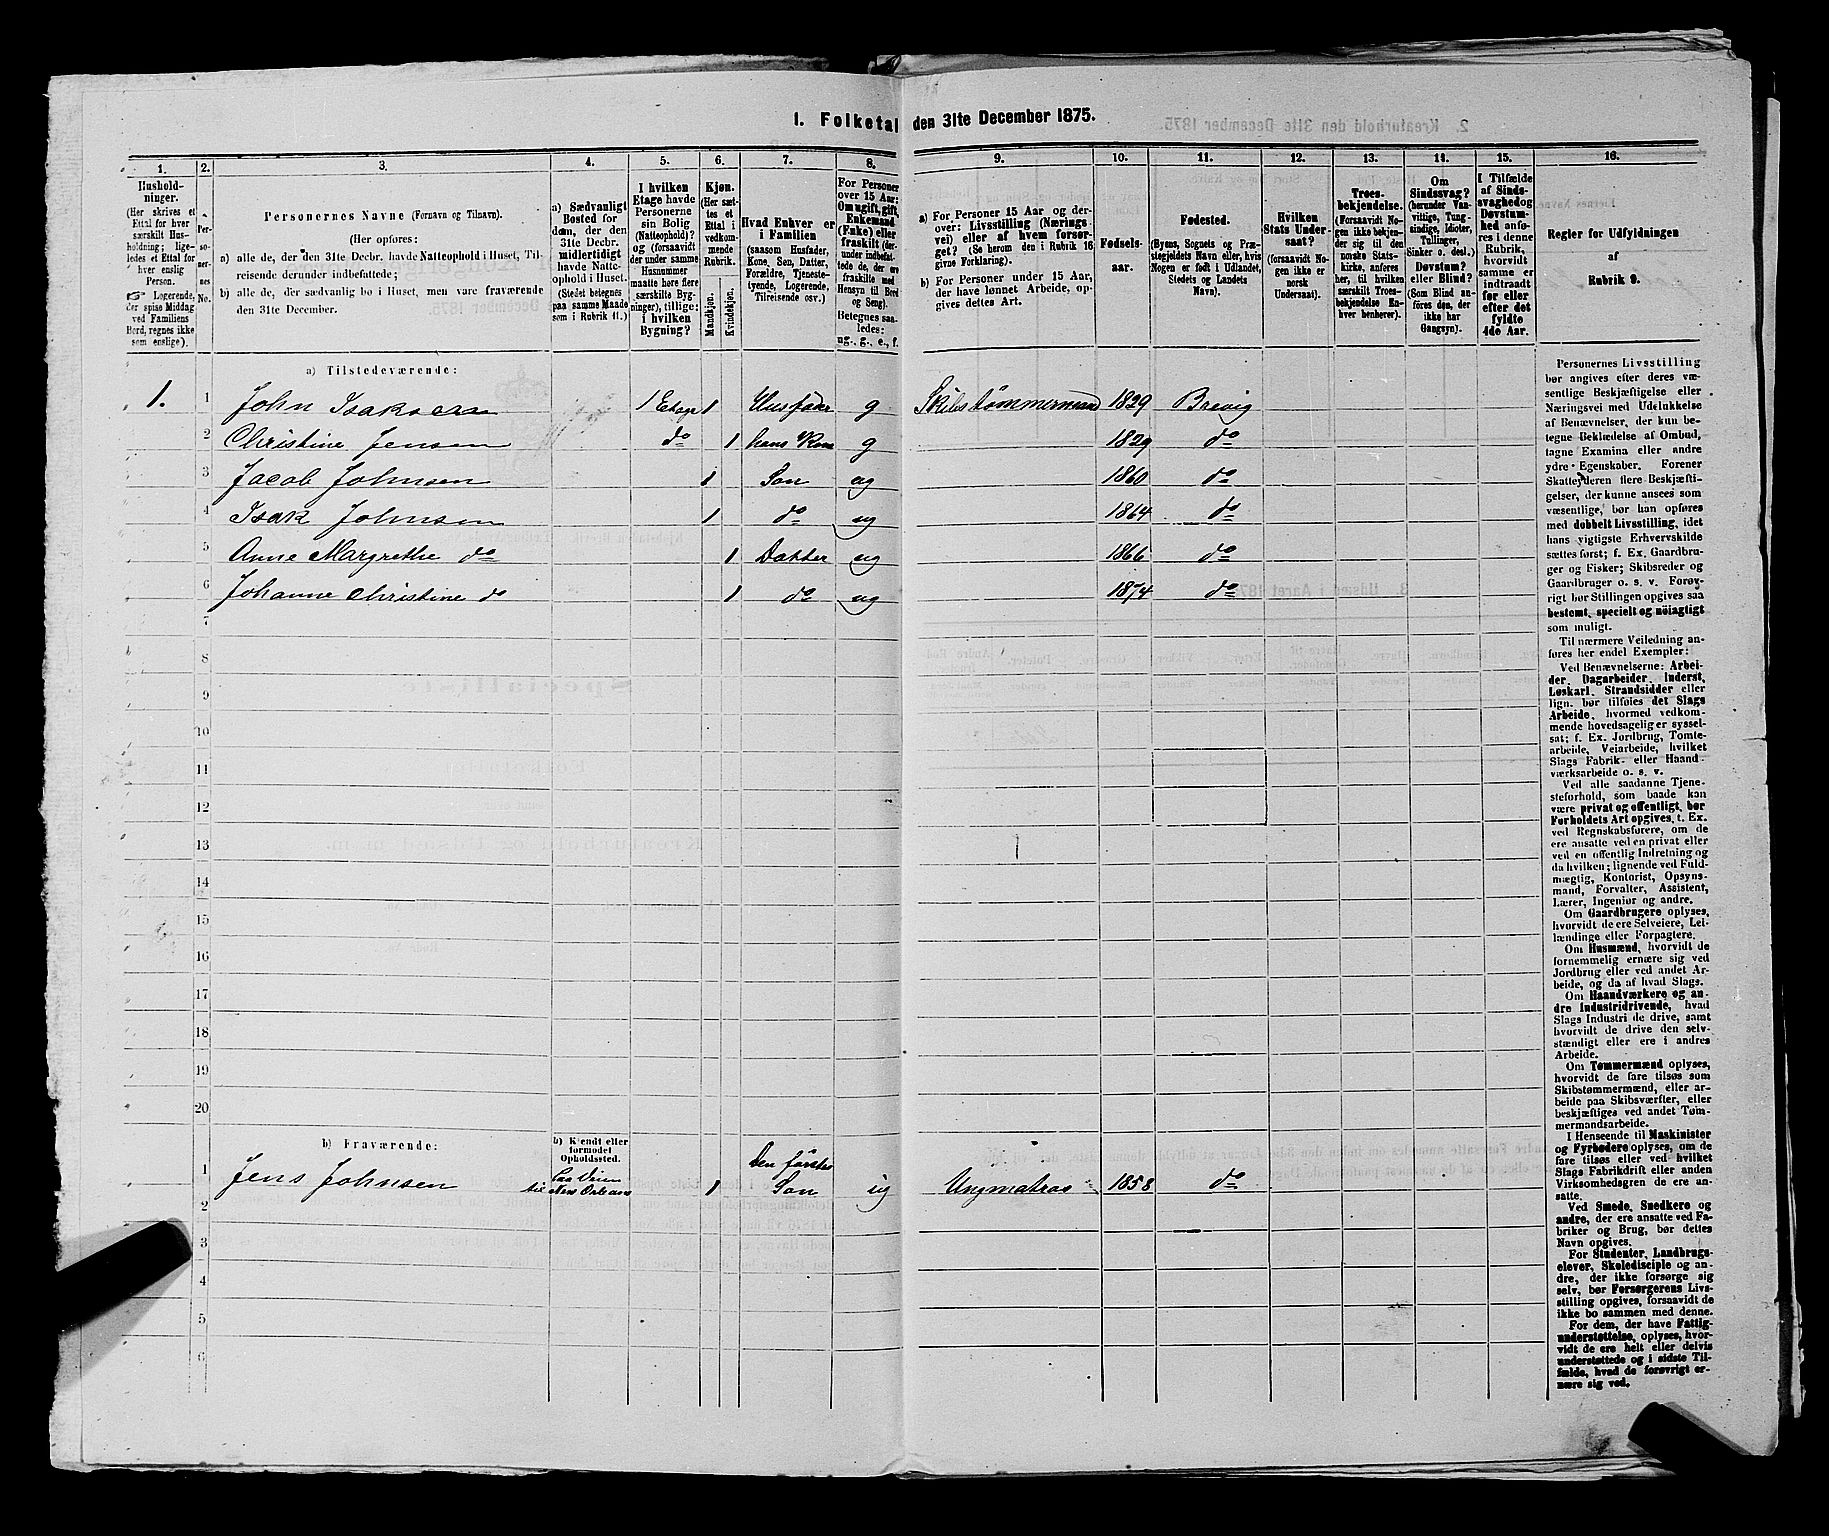 1. Folketal den 31te December 1875.
1.
2.
3.
4.
5.
6.
7.
8.
9.
10.
11.
12.
13.
14.
15.
16.
Husholdninger.
(Her skrives et
Ettal for hver
særskilt Husholdning; ligeledes
et Ettal for
hver enslig
Person.
☞ Logerende,
der spise Middag
ved Familiens
Bord, regnes ikke
som enslige).
Personernes No.
Personernes Navne (Fornavn og Tilnavn).
(Her opføres:
a) alle de, der den 31te Decbr. havde Natteophold i Huset, Tilreisende derunder indbefattede;
b) alle de, der sædvanlig bo i Huset, men vare fraværende
den 31te December.
a) Sædvanligt
Bosted for
dem, der den
31te Decbr.
midlertidigt
havde Natteophold i Huset.
(Stedet betegnes
paa samme Maade
som i Rubrik 11.)
I hvilken
Etage havde
Personerne
sin Bolig
(Natteophold)?
og (forsaavidt
der under samme
Husnummer
maatte høre flere
særskilte Bygninger), tillige:
i hvilken
Bygning?
Kjøn.
(Her sættes et
Ettal i
vedkommende
Rubrik.
Mandkjøn.
Kvindekjøn.
Hvad Enhver er
i Familien
(saasom Husfader,
Kone, Søn, Datter,
Forældre, Tjenestetyende, Logerende,
Tilreisende osv.)
For Personer
over 15 Aar:
Om ugift, gift,
Enkemand
(Enke) eller
fraskilt (derunder indbefattede de, der ere
fraskilte med
Hensyn til Bord
og Seng).
Betegnes saaledes:
ug., g., e., f.
a) For Personer 15 Aar og derover: Livsstilling (Næringsvei) eller af hvem forsørget? (Se herom den i Rubrik 16
givne Forklaring).
b) For Personer under 15 Aar,
der have lønnet Arbeide, opgives dettes Art.
Fødselsaar.
Fødested.
(Byens, Sognets og Præstegjeldets Navn eller, hvis
Nogen er født i Udlandet,
Stedets og Landets
Navn).
Hvilken
Stats Undersaat?
(forsaavidt Nogen ikke er
norsk
Undersaat).
Troesbekjendelse.
(Forsaavidt Nogen ikke bekjender sig til den
norske Statskirke, anføres
her, til hvilken
særskilt Troesbekjendelse Enhver henhører).
Om
Sindssvag?
(herunder Vanvittige, Tungsindige, Idioter,
Tullinger,
Sinker o. desl.)
Døvstum?
eller Blind?
(Som Blind anføres den, der
ikke har
Gangsyn).
I Tilfælde
af Sindssvaghed og
Døvstumhed anføres i denne
Rubrik,
hvorvidt
samme er
indtraadt
før eller
efter det
fyldte
4de Aar.
Regler for Udfyldningen
af
Rubrik 9.
a) Tilstedeværende:
1. 1 John Isaksen 1 Etage 1 Husfader g Skibstømmermand 1829 Brevig
2 Christine Jensen do 1 hans Kone g 1829 do
3 Jacob Johnsen 1 Søn ug 1860 do
4 Isak Johnsen 1 do ug 1864 do
5 Anne Margrethe do 1 Datter ug 1866 do
6 Johanne Christine do 1 do ug 1874 do
7
8
9
10
11
12
13
14
15
16
17
18
19
20
b) Fraværende:
b) Kjendt eller
formodet
Opholdssted.
Den første
1 Jens Johnsen til New Orleans 1 Søn ug Ungmatros 1858 do
2
3
4
5
6
Personernes Livsstilling
bør angives efter deres væsentlige Beskjæftigelse eller
Næringsvei med Udelukkelse
af Benævnelser, der kun betegne Beklædelse af Ombud,
tagne Examina eller andre
ydre Egenskaber. Forener
Skatteyderen flere Beskjæftigelser, der kunne ansees som
væsentlige, bør han opføres
med dobbelt Livsstilling, idet
hans vigtigste Erhvervskilde
sættes først; f. Ex. Gaardbruger og Fisker; Skibsreder og
Gaardbruger o. s. v. Forøvrigt bør Stillingen opgives saa
bestemt, specielt og nøiagtigt
som muligt.
Til nærmere Veiledning anføres her endel Exempler:
Ved Benævnelserne: Arbeider, Dagarbeider, Inderst,
Løskarl, Strandsidder eller
lign. bør tilføies det Slags
Arbeide, hvormed vedkommende hovedsagelig er sysselsat; f. Ex. Jordbrug, Tomtearbeide, Veiarbeide, hvilket
Slags Fabrik- eller Haandværksarbeide o. s. v.
Ved alle saadanne Tjenesteforhold, som baade kan
være privat og offentligt, bør
Forholdets Art opgives, t. Ex.
ved Regnskabsførere, om de
ere ansatte ved en privat eller
ved en offentlig Indretning og
da hvilken; lignende ved Fuldmægtig, Kontorist, Opsynsmand, Forvalter, Assistent,
Lærer, Ingeniør og andre.
Om Gaardbrugere oplyses,
hvorvidt de ere Selveiere, Leilændinge eller Forpagtere.
Om Husmænd, hvorvidt de
fornemmelig ernære sig ved
Jordbrug eller ved andet Arbeide, og da af hvad Slags.
Om Haandværkere og andre Industridrivende, hvad
Slags Industri de drive, samt
hvorvidt de drive den selvstændigt eller ere i andres
Arbeide.
Om Tømmermænd oplyses,
hvorvidt de fare tilsøs som
Skibstømmermænd, eller arbeide paa Skibsværfter, eller
beskjæftiges ved andet Tømmermandsarbeide.
I Henseende til Maskinister
og Fyrbødere oplyses, om de
fare tilsøs eller ved hvilket
Slags Fabrikdrift eller anden
Virksomhedsgren de ere ansatte.
Ved Smede, Snedkere og
andre, der ere ansatte ved Fabriker og Brug, bør dettes
Navn opgives.
For Studenter, Landbrugselever, Skoledisciple og andre, der ikke forsørge sig
selv, bør Forsørgerens Livsstilling opgives, forsaavidt de
ikke bo sammen med denne.
For dem, der have Fattigunderstøttelse, oplyses, hvorvidt de ere helt eller delvis
understøttede og i sidste Tilfælde, hvad de forøvrigt ernære sig ved.